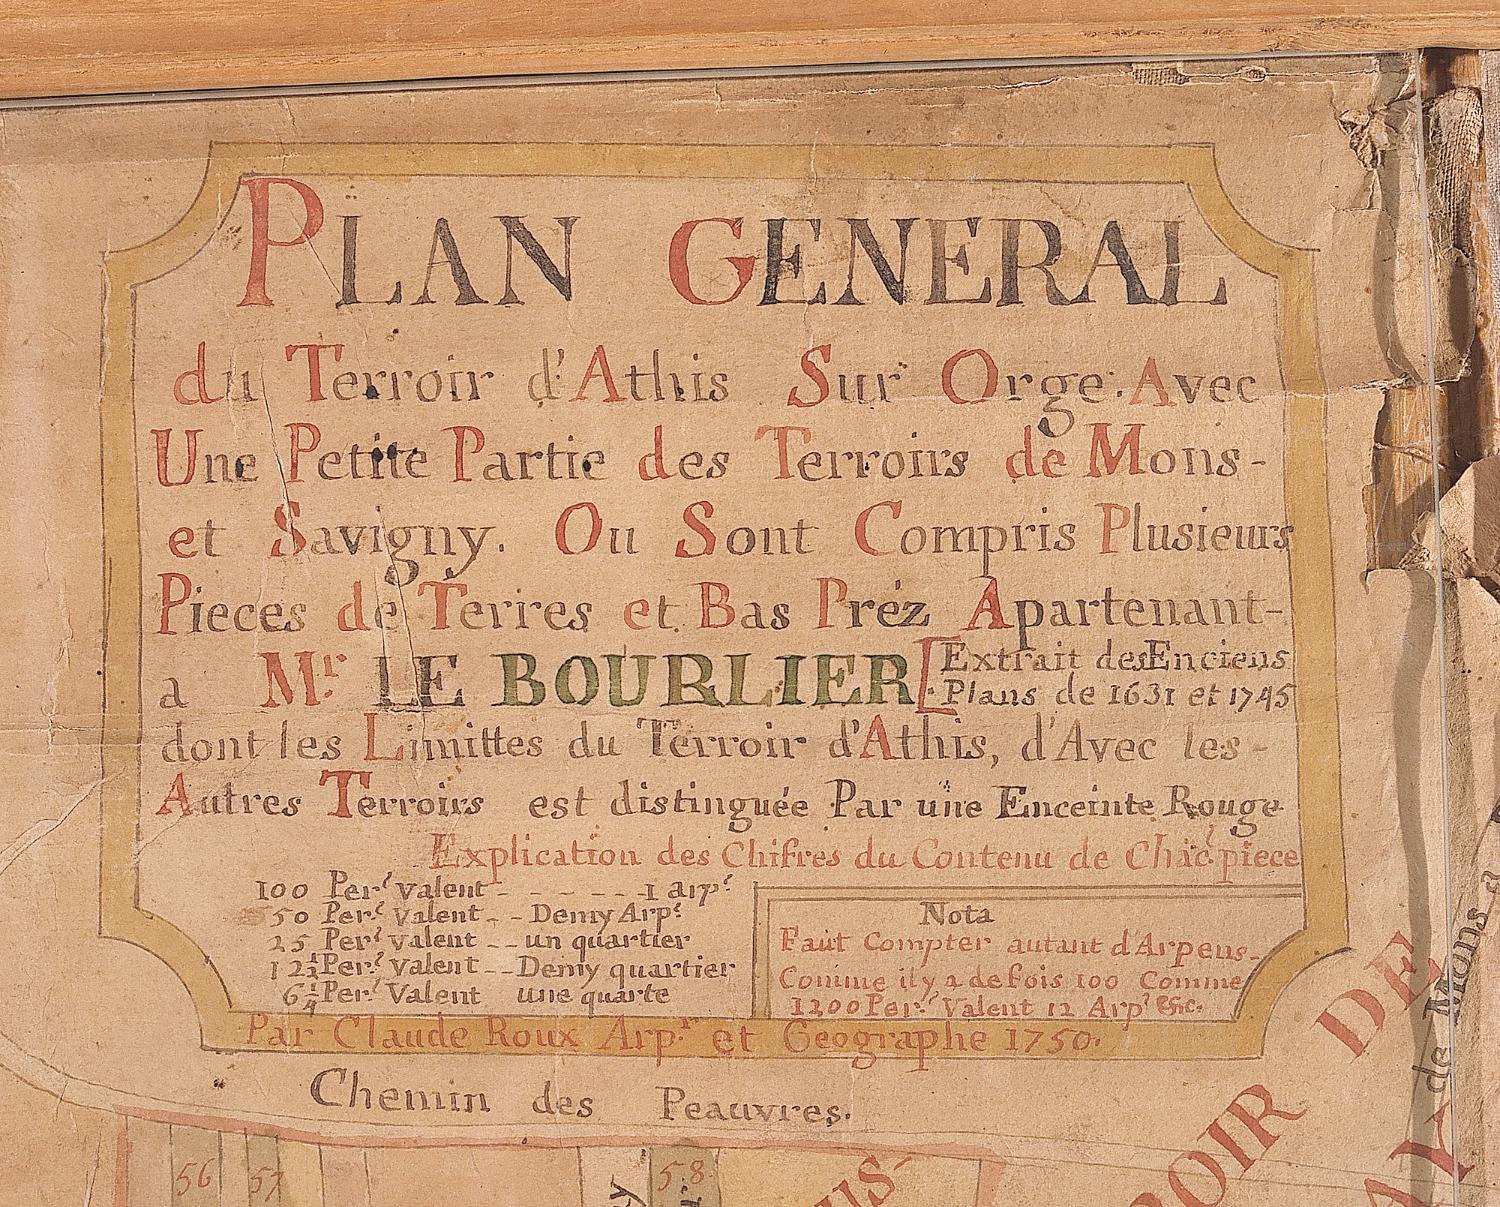 PLAN GENERAL
du Terroir d'Athis Sur Orge. Avec
Une Petite Partie des Terroirs de Mons-
et Savigny. Ou Sont Compris Plusieurs
Pieces de Terres et Bas Préz Apartenant-
a Mr. LE BOURLIER [Extrait des Enciens
Plans de 1631 et 1745
dont les Limittes du Terroir d'Athis, d'Avec les-
Autres Terroirs est distinguée Par une Enceinte Rouge
Explication des Chifres du Contenu de Chac̃e. piece
100 Per.s valent ------ 1 arp.t
50 Per.s Valent -- Demy Arp.t
25 Per.s valent -- un quartier
12½ Per.s valent -- Demy quartier
6¼ Per.s Valent une quarte
Nota
Faut Compter autant d'Arpens-
Comme il y a de fois 100 Comme
1200 Per.s Valent 12 Arp.s &c.
Par Claude Roux Arp.r et Geographe 1750.
Chemin des Peauvres.
56 57 58
DE
de Mons a
OIR